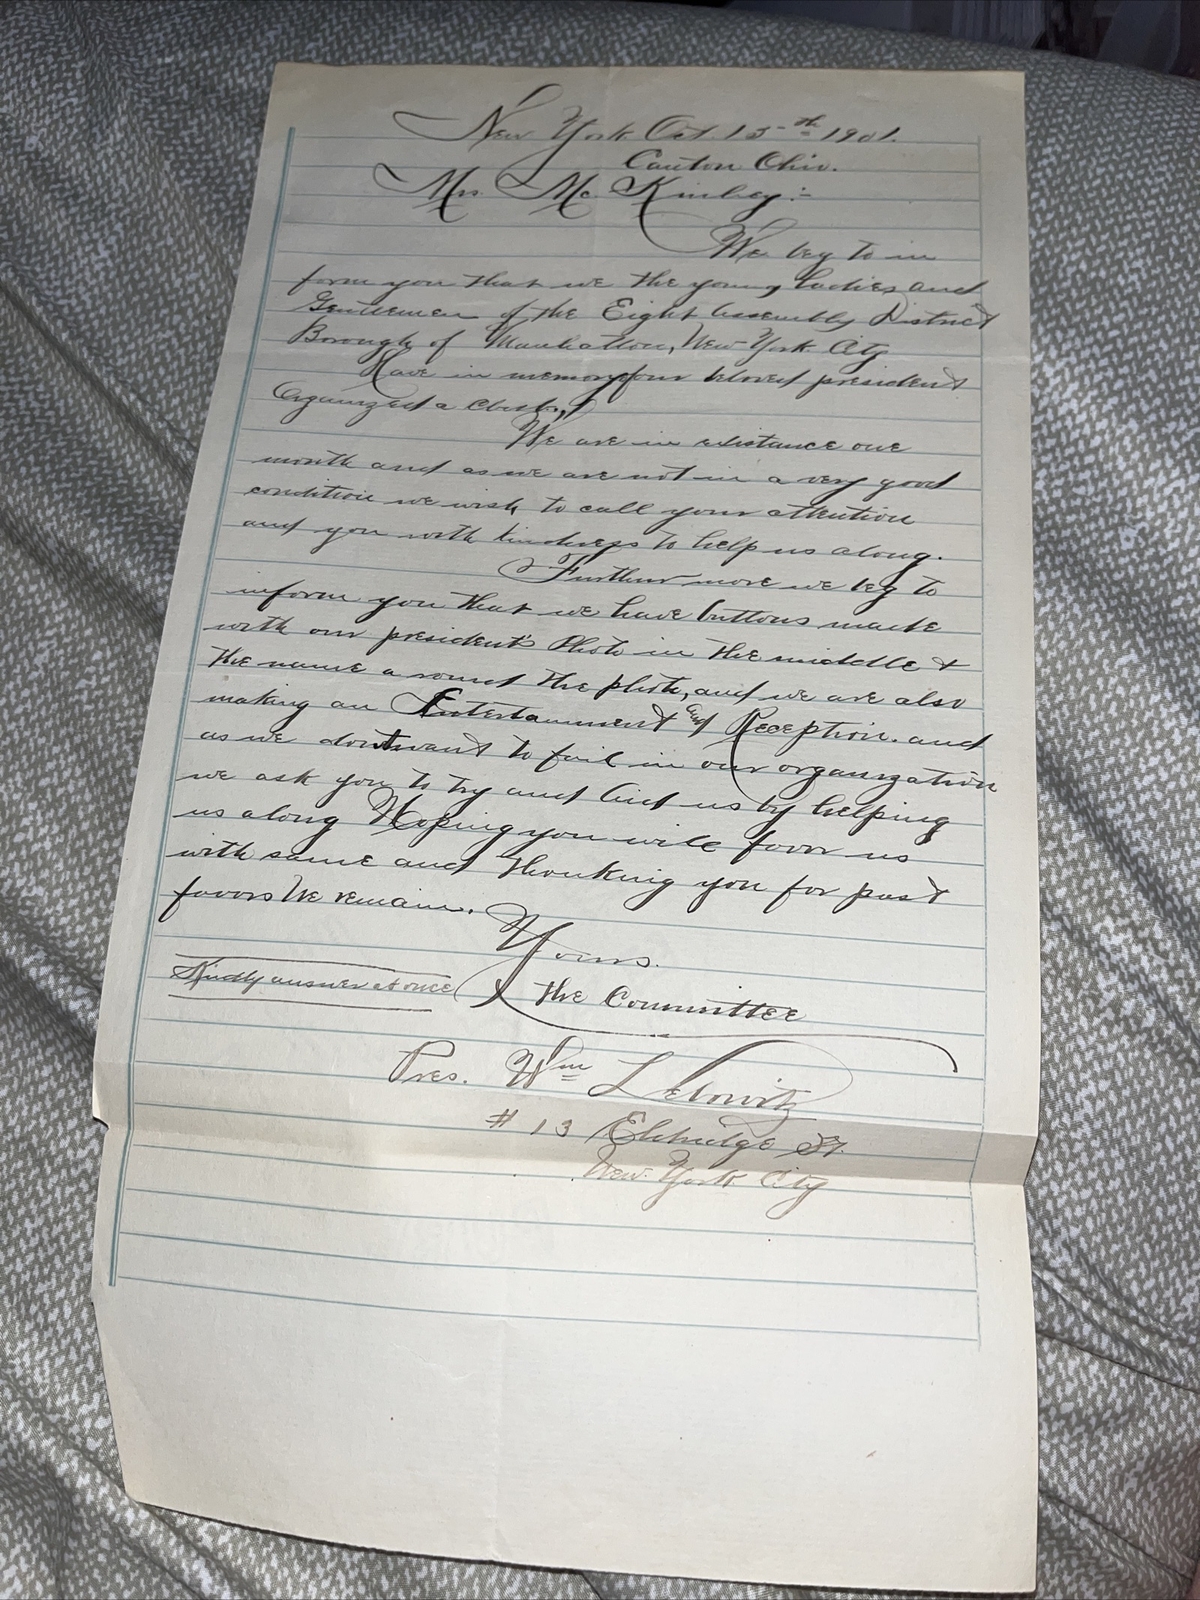 New York Oct 15-th 1901.
Canton Ohio.
Mrs. Mc Kinley:-
We beg to in
form you that we the young Ladies and
Gentlemen of the Eight Assembly District
Borough of Manhattan, New York City
Have in memory of our beloved president
Organized a Club,
We are in existance one
month and as we are not in a very good
condition we wish to call your attention
and you with kindness to help us along.
Further more we beg to
inform you that we have buttons made
with our president's Photo in the middle &
the name around the photo, and we are also
making an Entertainment and Reception. and
as we dont want to fail in our organization
we ask you to try and aid us by helping
us along Hoping you will favor us
with same and thanking you for past
favors We remain.
Yours.
Kindly answer at once
The Committee
Pres. Wm Lebowitz
# 13 Eldridge St.
New York City